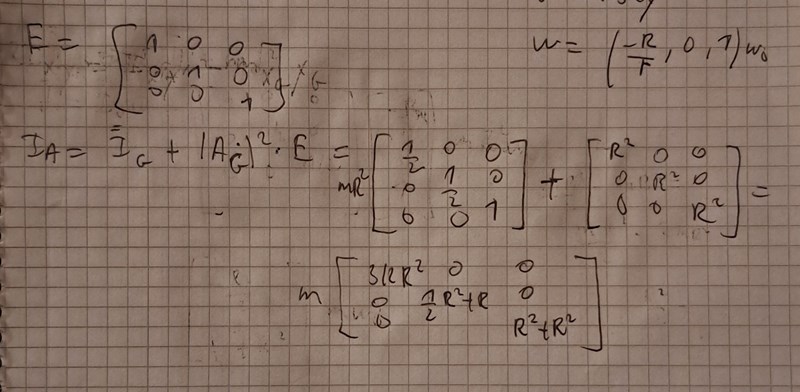 E = [ 1 0 0
0 1 0
0 0 1 ]
w = (-R/F, 0, 1) w₀
I_A = I_G + |AG|² · E = mR² [ 1/2 0 0
0 1/2 0
0 0 1 ] + [ R² 0 0
0 R² 0
0 0 R² ] =
m [ 3/2 R² 0 0
0 1/2 R²+R 0
0 R²+R² ]